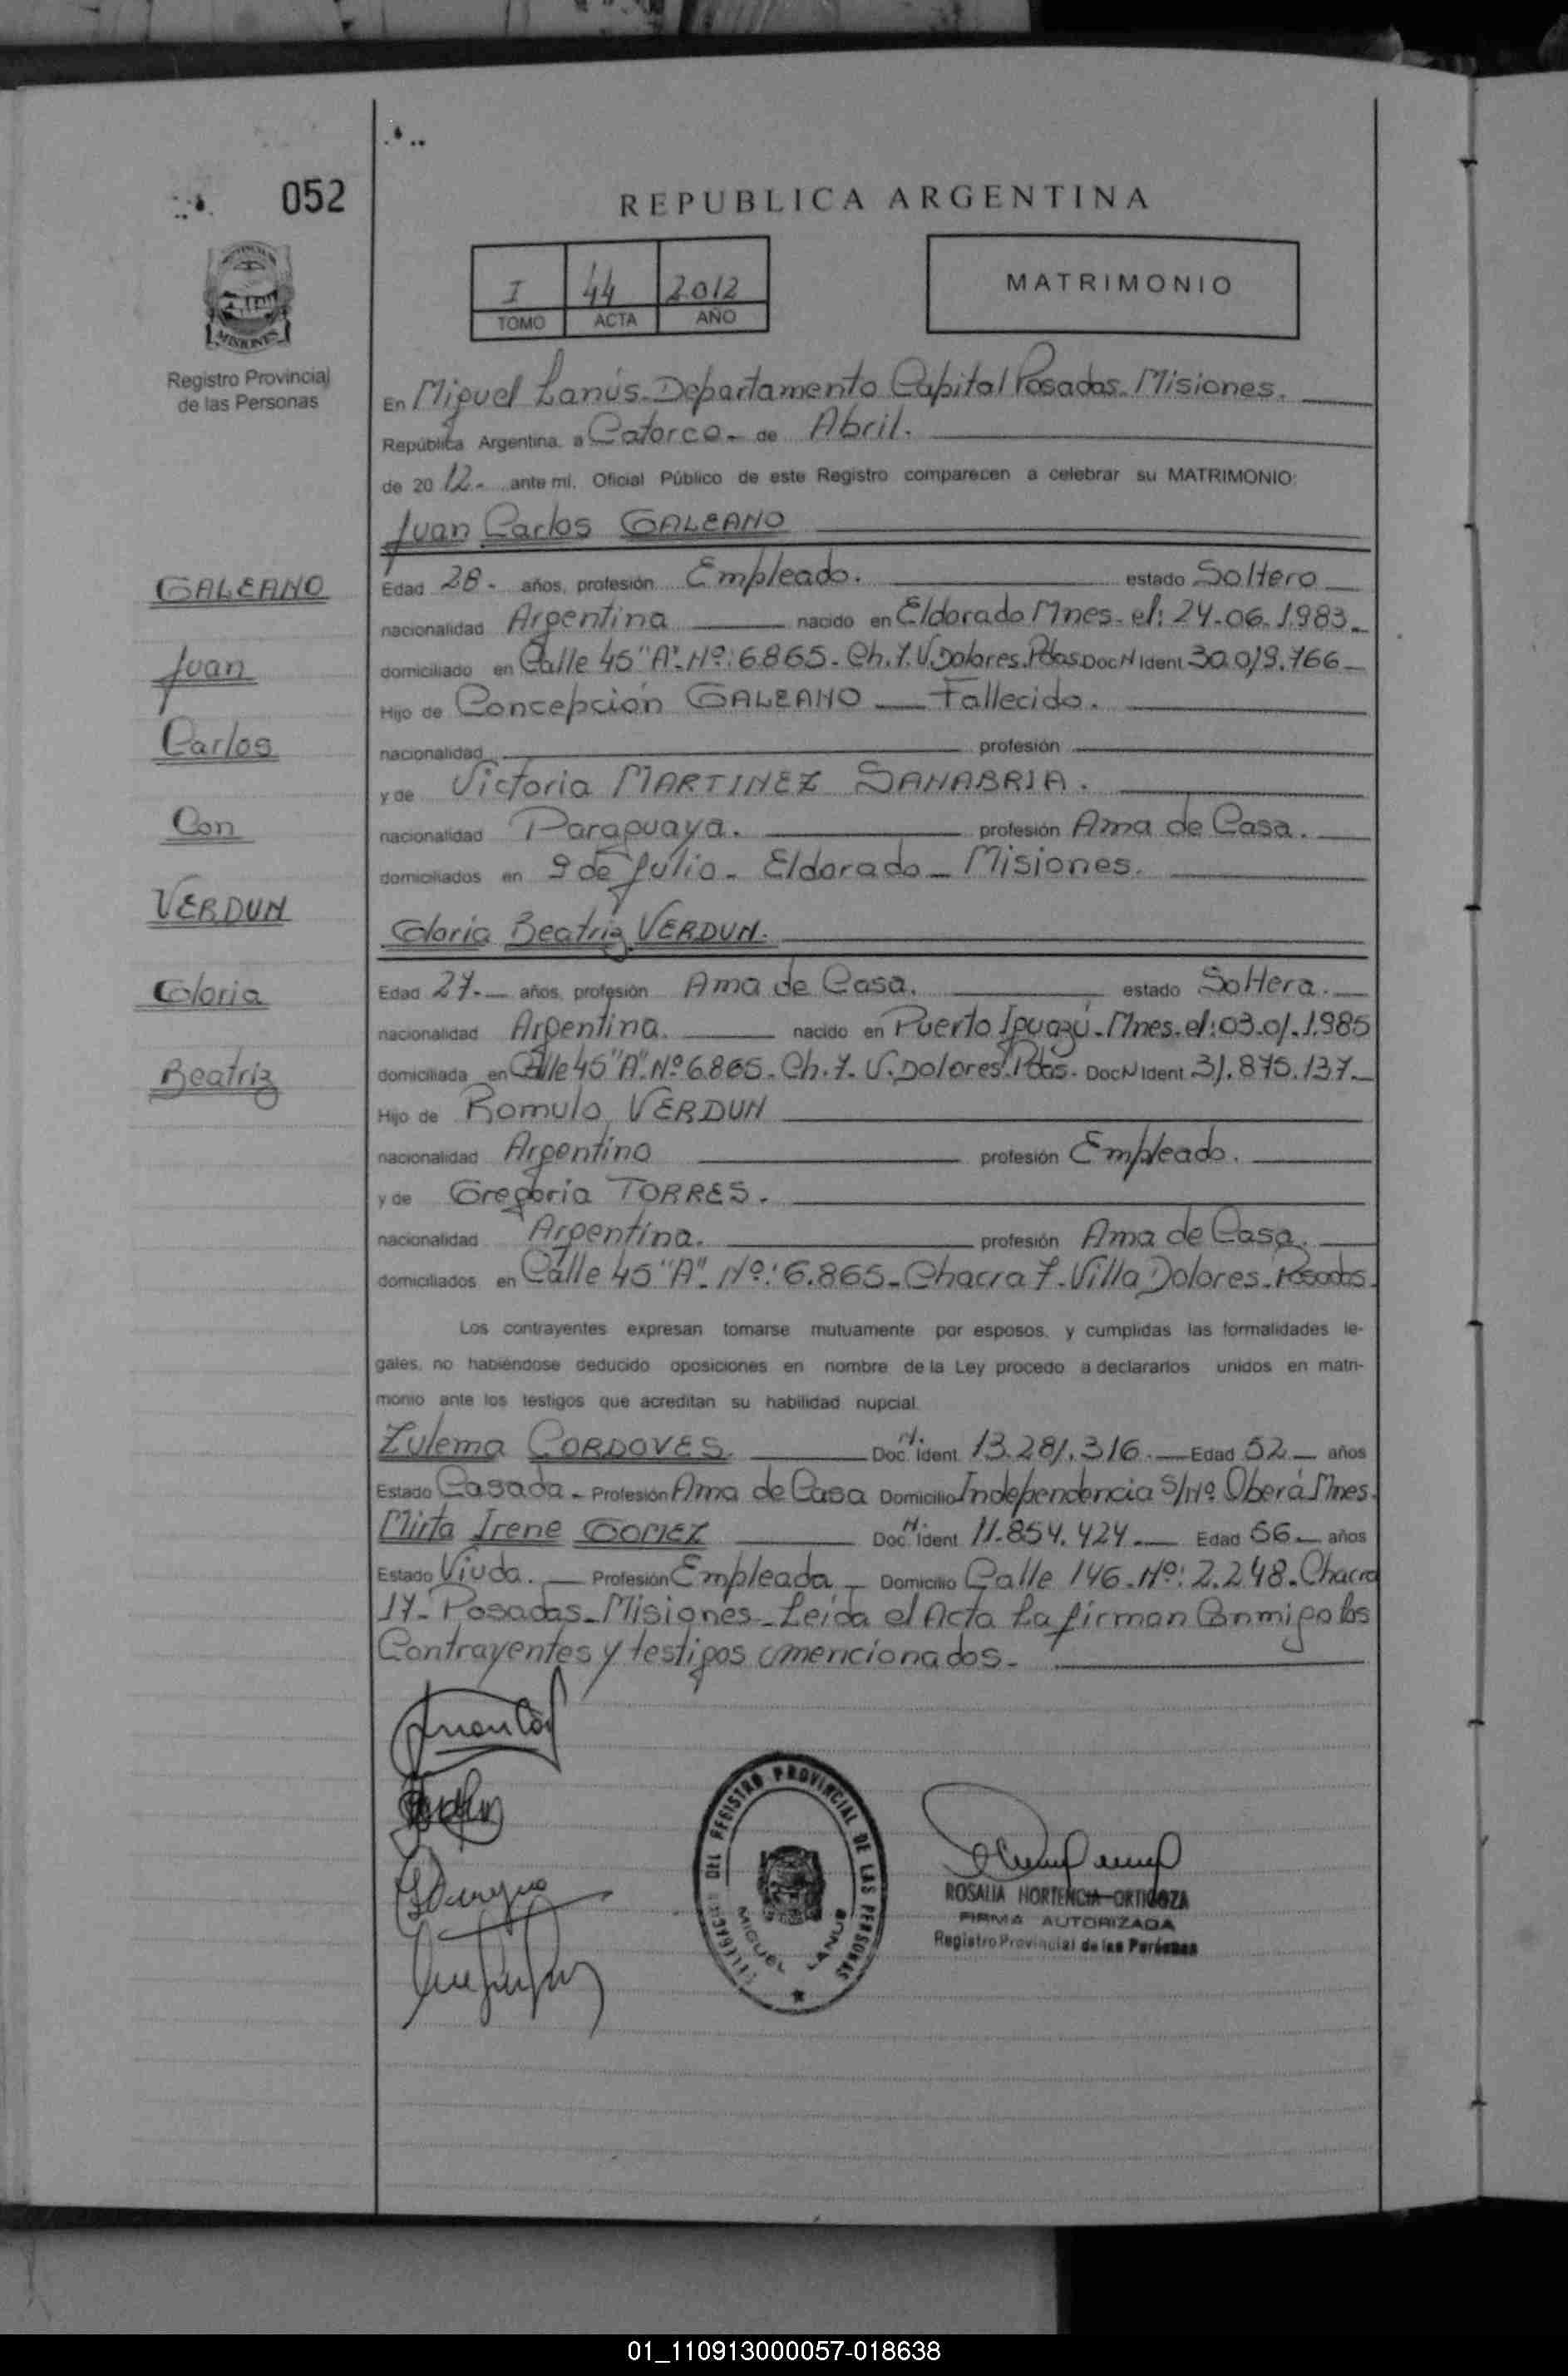 052
REPUBLICA ARGENTINA
I 44 2012
TOMO ACTA AÑO
MATRIMONIO
Registro Provincial
de las Personas
En Miguel Lanús-Departamento Capital Posadas-Misiones.
República Argentina, a Catorce- de Abril.
de 2012.- ante mi, Oficial Público de este Registro comparecen a celebrar su MATRIMONIO:
Juan Carlos GALEANO
Edad 28- años, profesión Empleado. estado Soltero
nacionalidad Argentina nacido en Eldorado Mnes- el: 24-06-1.983-
domiciliado en Calle 45"A"-Nº:6865-Ch.7.V.Dolores.Pdas Doc N Ident 30.019.766-
Hijo de Concepción GALEANO — Fallecido.
nacionalidad profesión
y de Victoria MARTINEZ SANABRIA.
nacionalidad Paraguaya. profesión Ama de Casa.
domiciliados en 9 de Julio- Eldorado- Misiones.
Gloria Beatriz VERDUN.
Edad 27.- años, profesión Ama de Casa. estado Soltera.
nacionalidad Argentina. nacido en Puerto Iguazú-Mnes-el:03-01-1.985
domiciliada en Calle 45"A"-Nº6865-Ch.7-V.Dolores.Pdas- Doc N Ident 31.875.137-
Hijo de Romulo VERDUN
nacionalidad Argentino profesión Empleado.
y de Gregoria TORRES.
nacionalidad Argentina. profesión Ama de Casa.
domiciliados en Calle 45"A"-Nº:6.865-Chacra 7-Villa Dolores-Posadas-
Los contrayentes expresan tomarse mutuamente por esposos, y cumplidas las formalidades le-
gales, no habiéndose deducido oposiciones en nombre de la Ley procedo a declararlos unidos en matri-
monio ante los testigos que acreditan su habilidad nupcial.
Zulema CORDOVES. Doc. N. Ident 13.281.316.- Edad 52- años
Estado Casada- Profesión Ama de Casa Domicilio Independencia S/Nº Oberá Mnes.
Mirta Irene GOMEZ Doc. N. Ident 11.854.424- Edad 56- años
Estado Viuda.- Profesión Empleada- Domicilio Calle 146-Nº:2.248-Chacra
17-Posadas-Misiones-Leída el Acta La firman Conmigo los
Contrayentes y testigos mencionados-
GALEANO
Juan
Carlos
Con
VERDUN
Gloria
Beatriz
DEL REGISTRO PROVINCIAL DE LAS PERSONAS
MIGUEL LANUS
ROSALIA HORTENCIA ORTIGOZA
FIRMA AUTORIZADA
Registro Provincial de las Personas
01_110913000057-018638